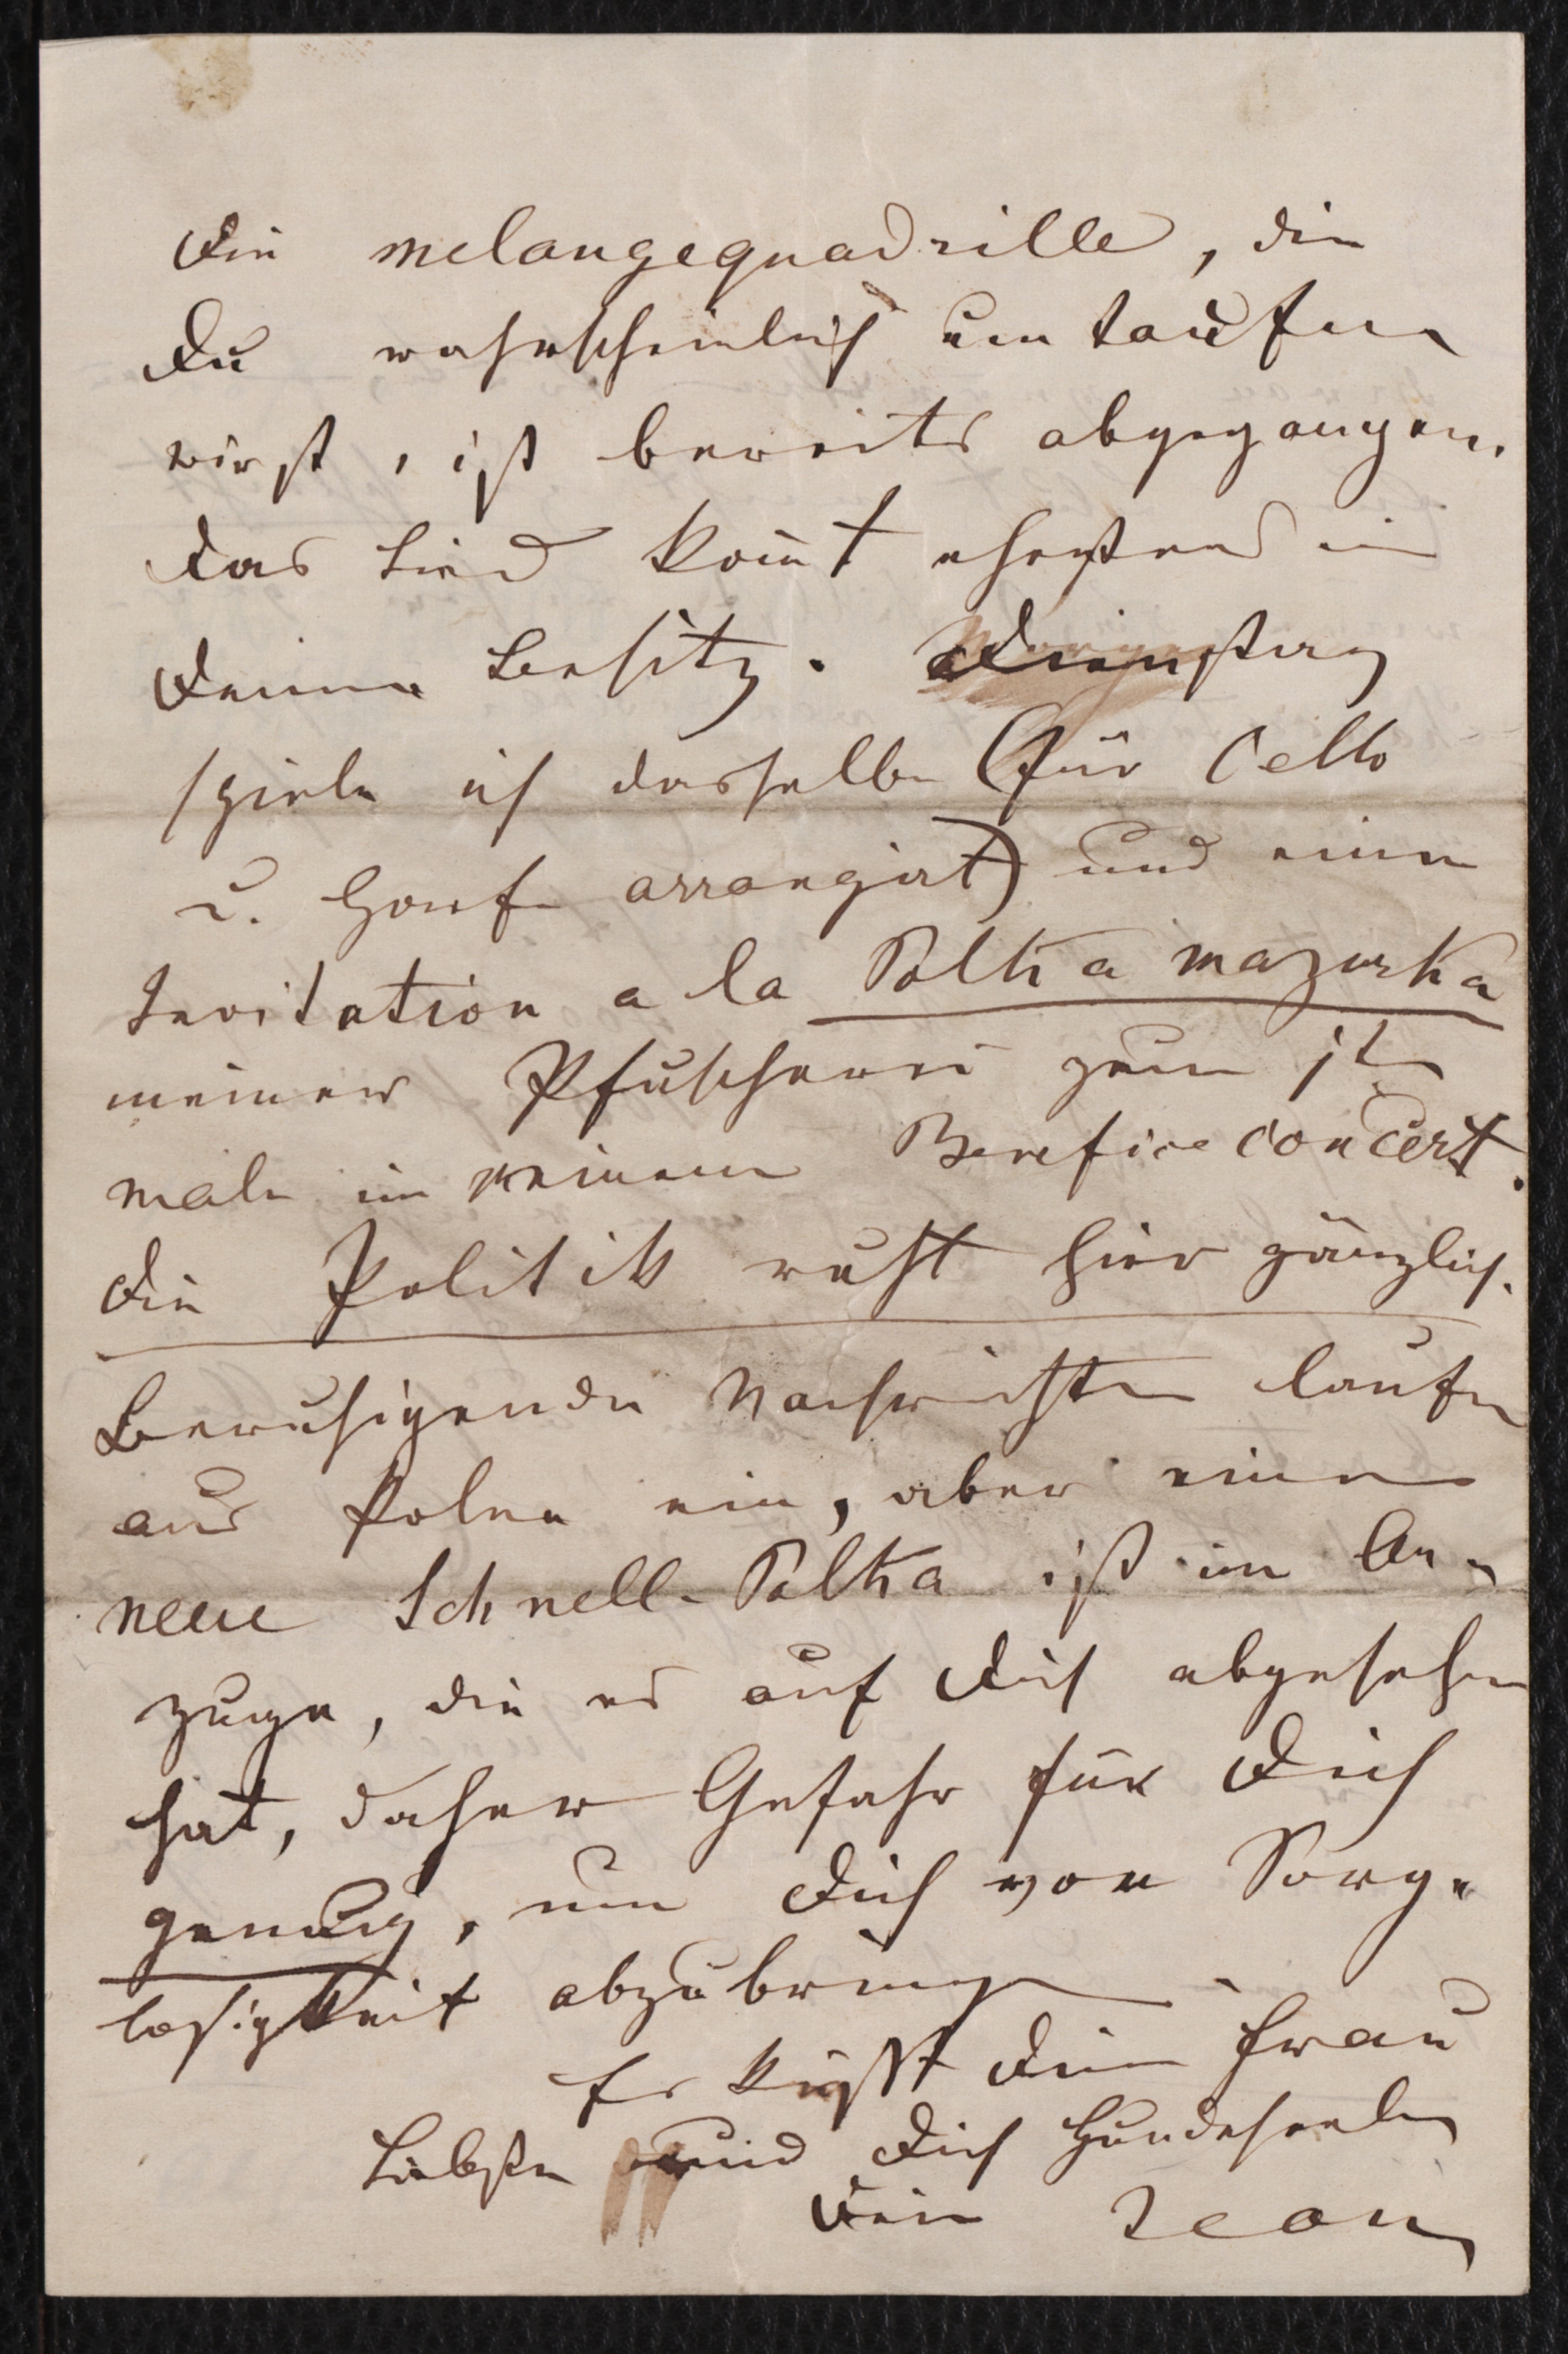 Die Melangequadrille, die
Du wahrscheinlich umtaufen
wirst, ist bereits abgegangen.
Das Lied kom̄t ehestens in
Deinen Besitz. Dienstag
spiele ich dasselbe (für Cello
u. Harfe arrangirt) und eine
Invitation a la Polka mazurka
meiner Pfuscherei zum 1t
male in meinem Benefice concert.
Die Politik ruht hier gänzlich.
Beruhigende Nachrichten laufen
aus Polen ein, aber eine
neue Schnell-Polka ist im An-
zuge, die es auf Dich abgesehen
hat, daher Gefahr für Dich
genug, um Dich von Sorg-
losigkeit abzubringen
Es küsst Deine Frau
Liebste und Dich Hundeseele
Dein Jean